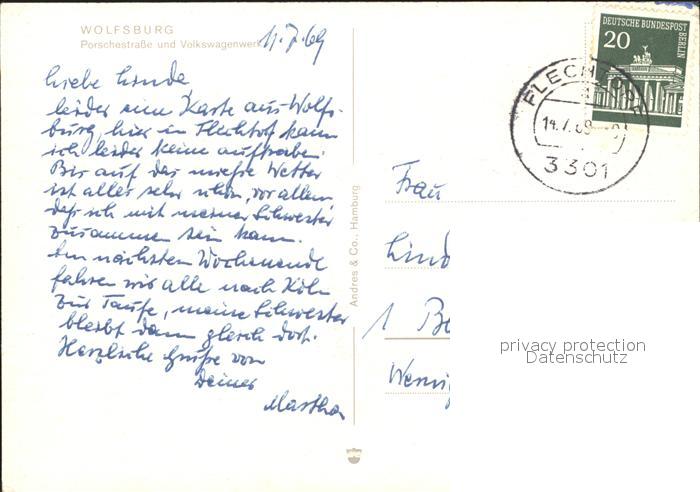 WOLFSBURG
Porschestraße und Volkswagenwerk
11.7.69
Liebe Linde,
leider eine Karte aus Wolfs-
burg, hier in Flechtorf kann
ich leider keine auftreiben.
Bis auf das  Wetter
ist alles sehr schön, vor allem
daß ich mit meiner Schwester
zusammen sein kann.
Am nächsten Wochenende
fahren wir alle nach Köln
zur Taufe, meine Schwester
bleibt dann gleich dort.
Herzliche Grüße von
Deiner
Martha
Andres & Co., Hamburg
DEUTSCHE BUNDESPOST
BERLIN
20
FLECHTORF
14.7.69
3301
Frau
Lind
1 Be
Werni
privacy protection
Datenschutz